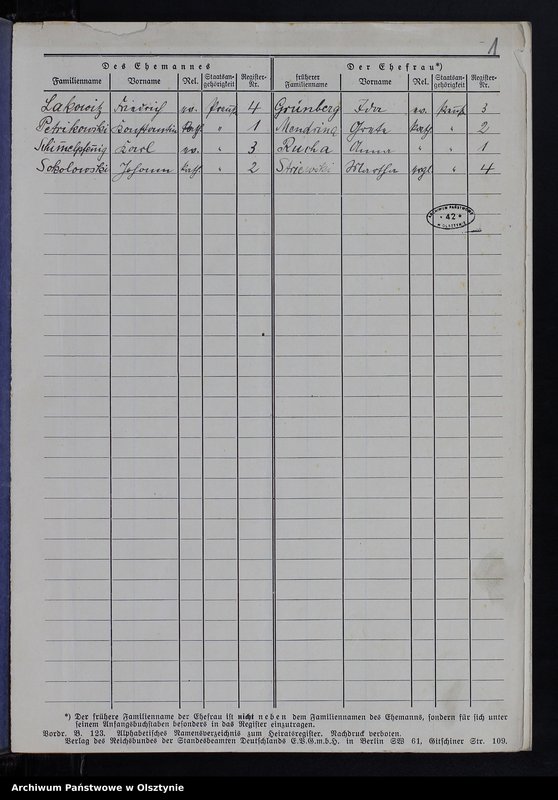 1
Des Ehemannes Der Ehefrau*)
Familienname Vorname Rel. Staatsan-gehörigkeit Register-Nr. früherer Familienname Vorname Rel. Staatsan-gehörigkeit Register-Nr.
Lakowitz Friedrich ev. Preuß. 4 Grünberg Ida ev. Preuß. 3
Petrikowski Konstantin Kath. " 1 Mendrina Grete Kath. " 2
Schimelpfenig Karl ev. " 3 Rucha Anna " " 1
Sokolowski Johann Kath. " 2 Striewski Martha evgl. " 4
ARCHIWUM PAŃSTWOWE
* 42 *
W OLSZTYNIE
*) Der frühere Familienname der Ehefrau ist nicht neben dem Familiennamen des Ehemanns, sondern für sich unter
seinem Anfangsbuchstaben besonders in das Register einzutragen.
Vordr. B. 123. Alphabetisches Namensverzeichnis zum Heiratsregister. Nachdruck verboten.
Verlag des Reichsbundes der Standesbeamten Deutschlands E.V.G.m.b.H. in Berlin SW 61, Gitschiner Str. 109.
Archiwum Państwowe w Olsztynie